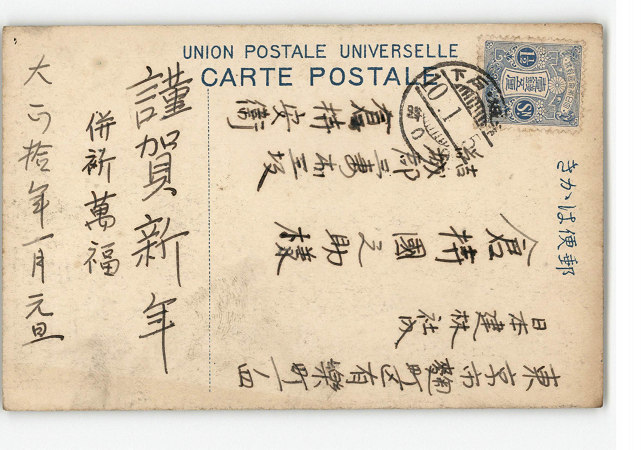 UNION POSTALE UNIVERSELLE
CARTE POSTALE
きかは便郵
謹賀新年
併祈萬福
大正拾年一月元旦
東京市麹町区有樂町一ノ四
日本建
社内
倉持國之助様
結城郡三妻村三坂
倉持安衛
10.1